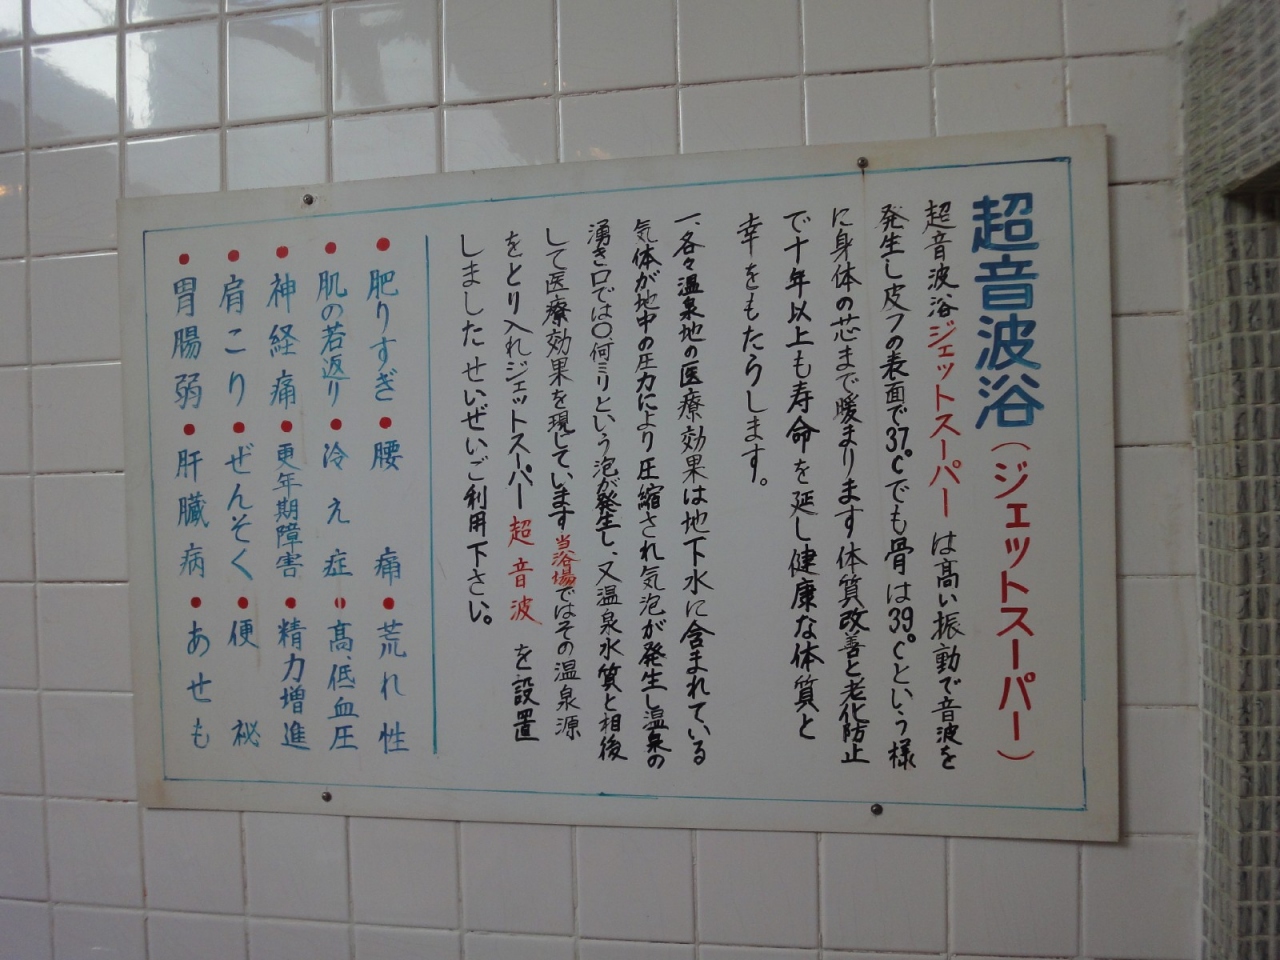 超音波浴(ジェットスーパー)
超音波浴ジェットスーパーは高い振動で音波を
発生し皮フの表面で37℃でも骨は39℃という様
に身体の芯まで暖まります体質改善と老化防止
で十年以上も寿命を延し健康な体質と
幸をもたらします。
一、各々温泉地の医療効果は地下水に含まれている
気体が地中の圧力により圧縮され気泡が発生し温泉の
湧き口では〇何ミリという泡が発生し、又温泉水質と相後
して医療効果を現しています当浴場ではその温泉源
をとり入れジェットスーパー超音波を設置
しましたせいぜいご利用下さい。
●肥りすぎ●腰痛●荒れ性
●肌の若返り●冷え症〃高、低血圧
●神経痛●更年期障害●精力増進
●肩こり●ぜんそく●便祕
●胃腸弱●肝臓病●あせも